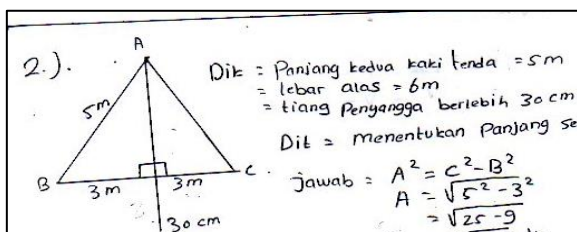 2.).
A
5m
B
3m
3m
C
30 cm
Dik = Panjang kedua kaki tenda = 5m
= lebar alas = 6m
= tiang Penyangga berlebih 30 cm
Dit = menentukan Panjang se
jawab = A² = C² - B²
A = √5² - 3²
= √25 - 9